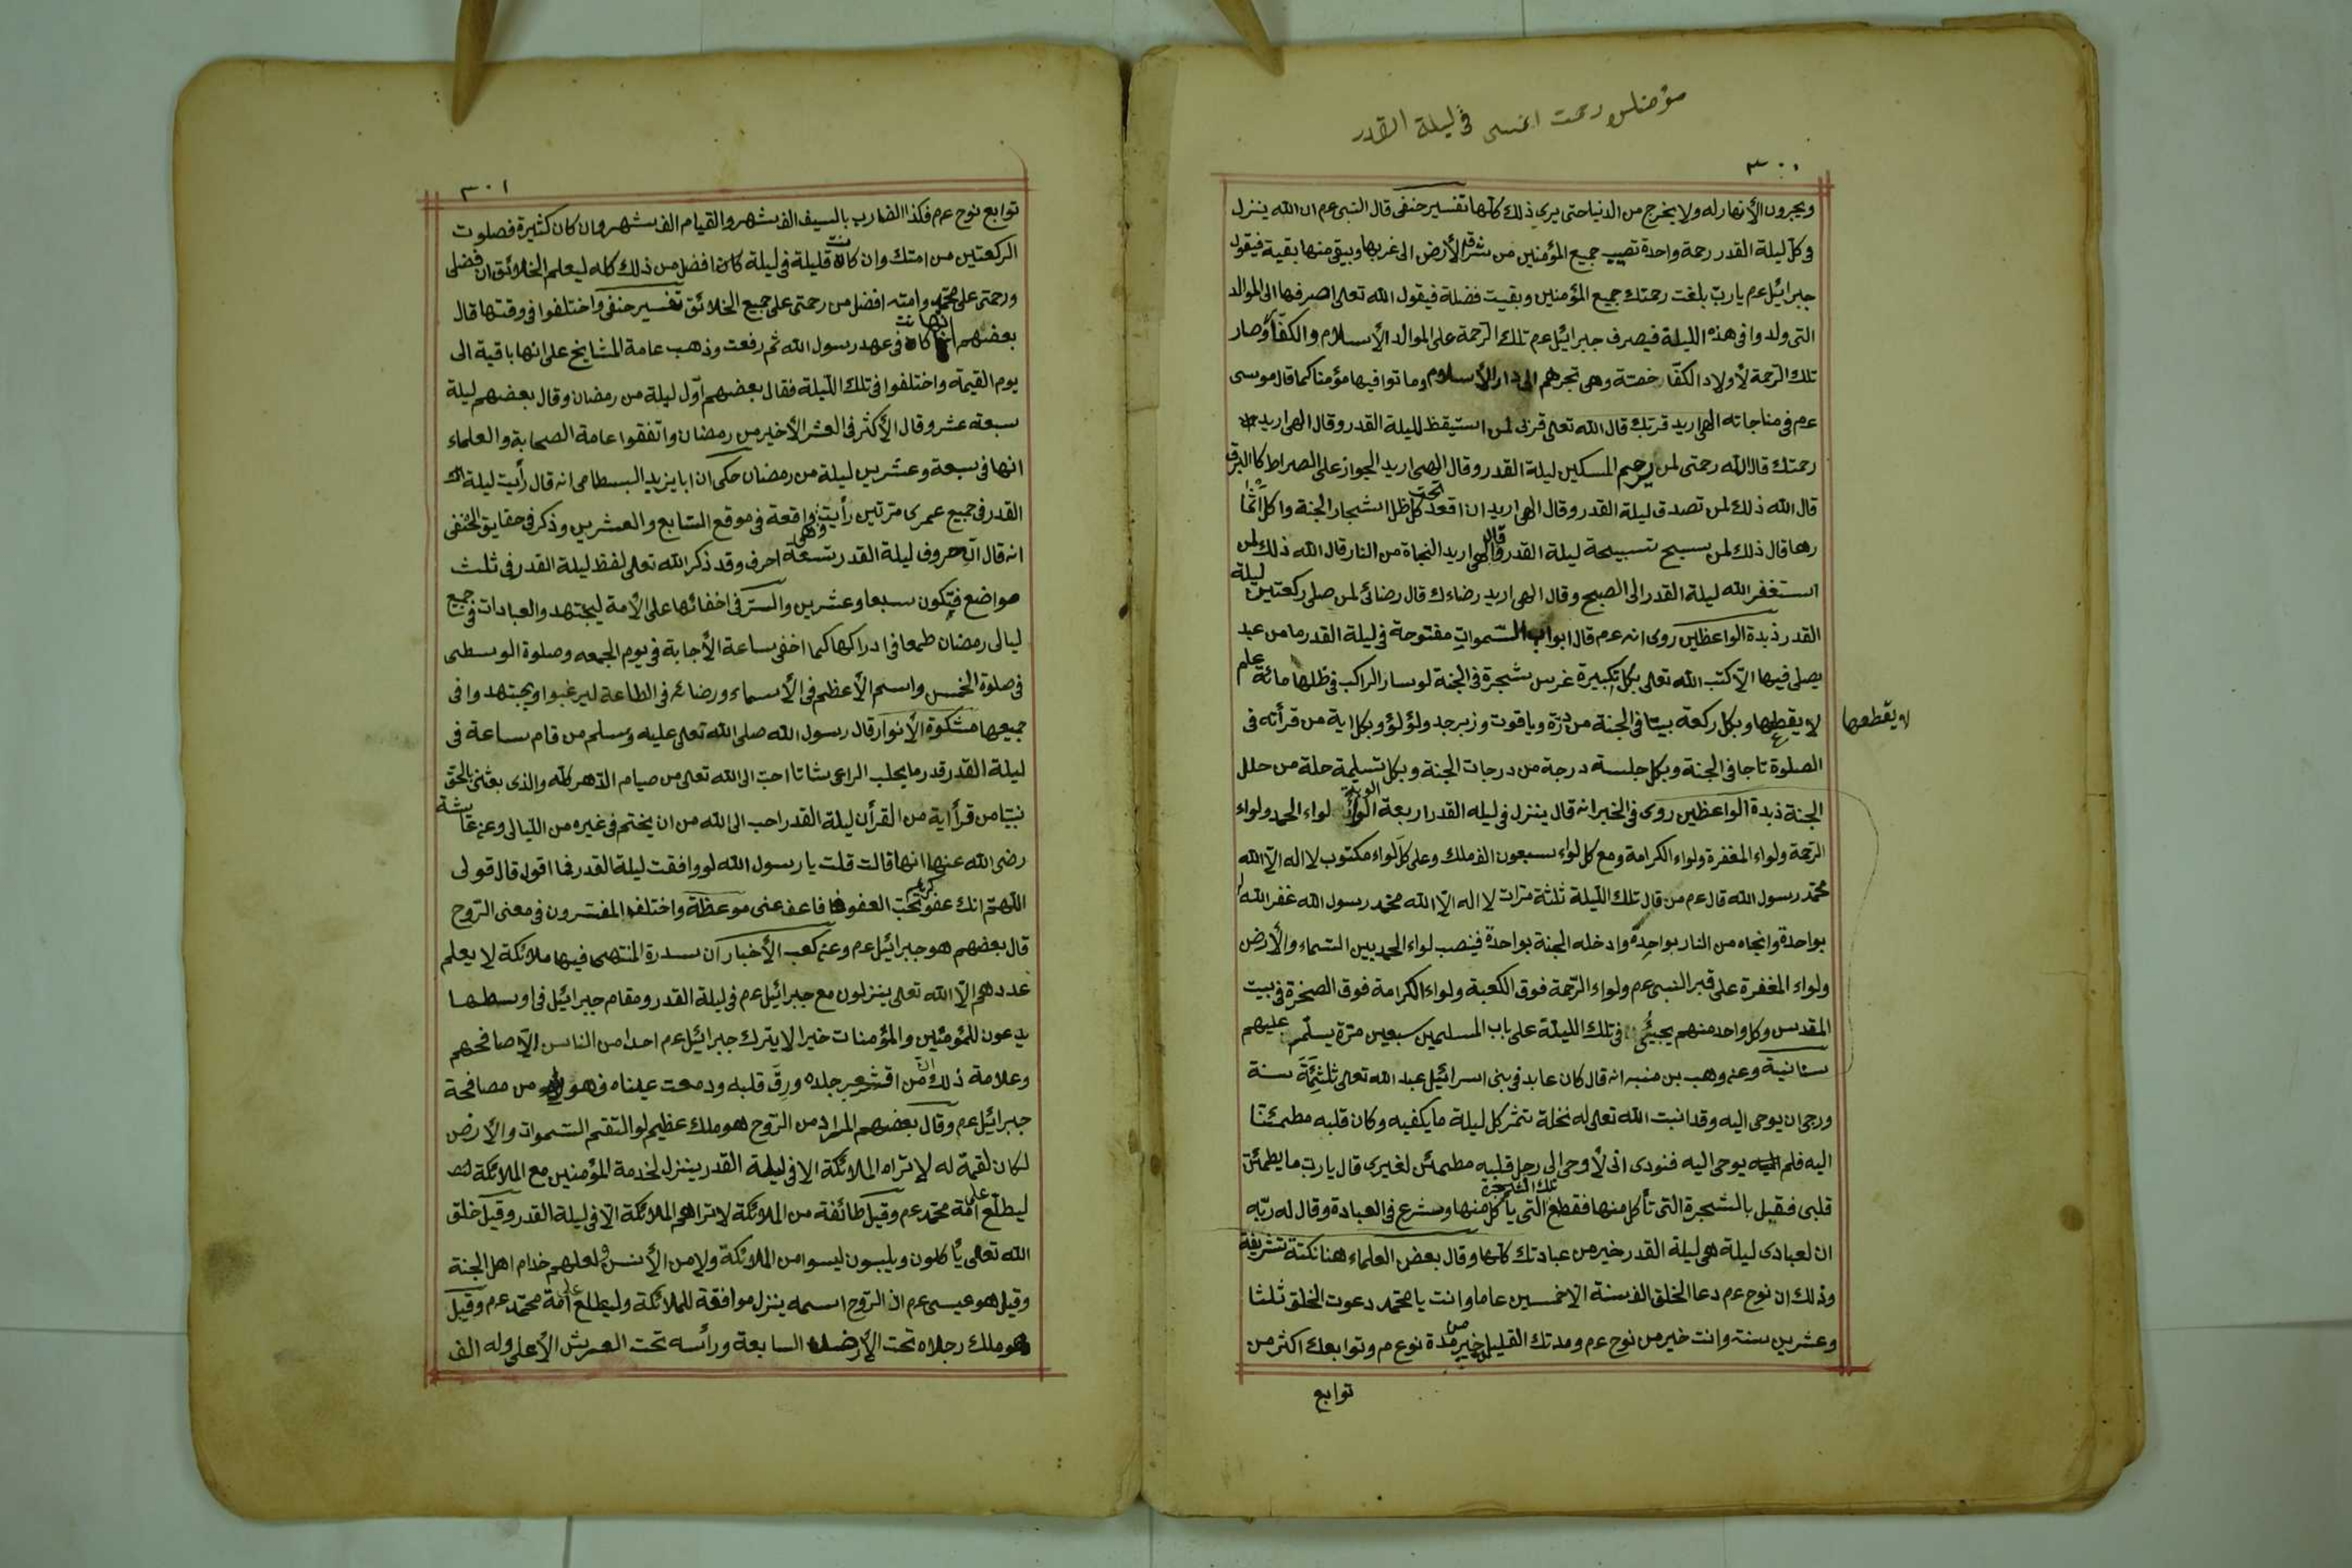 في ليلة القدر
٣٠٠
ويجرون الأنهار له ولا يخرج من الدنيا حتى يرى ذلك كلها تفسير حنفى قال النبى عم ان الله ينزل
فى كل ليلة القدر رحمة واحدة تصيب جميع المؤمنين من شرق الأرض الى غربها ويبقى منها بقية فيقول
جبرائيل عم يا رب بلغت رحمتك جميع المؤمنين وبقيت فضلة فيقول الله تعالى اصرفها الى الموالد
التى ولدوا فى هذه الليلة فيصرف جبرائيل عم تلك الرحمة على الموالد الأسلام والكفار وصار
تلك الرحمة لأولاد الكفار خصة وهى تجرهم الى دار الأسلام وماتوا فيها مؤمنا كما قال موسى
عم فى مناجاته الهى اريد قربك قال الله تعالى قربى لمن استيقظ لليلة القدر وقال الهى اريد
رحمتك قال الله رحمتى لمن يرحم المسكين ليلة القدر وقال الهى اريد الجواز على الصراط كالبرق
قال الله ذلك لمن تصدق ليلة القدر وقال الهى اريد ان اقعد تحت ظل اشجار الجنة واكل اثما
رها قال ذلك لمن سبح تسبيحة ليلة القدر وقال الهى اريد النجاة من النار قال الله ذلك لمن
استغفر الله ليلة القدر الى الصبح وقال الهى اريد رضاءك قال رضائى لمن صلى ركعتين ليلة
القدر ذبدة الواعظين روى انه عم قال ابواب السموات مفتوحة فى ليلة القدر ما من عبد
يصلى فيها الا كتب الله تعالى بكل تكبيرة غرس شجرة فى الجنة لو سار الراكب فى ظلها مائة علم
لا يقطعها وبكل ركعة بيتا فى الجنة من درة وياقوت وزبرجد ولؤلؤ وبكل اية من قرأته فى
لا يقطعها
الصلوة تاجا فى الجنة وبكل جلسة درجة من درجات الجنة وبكل تسليمة حلة من حلل
الجنة ذبدة الواعظين روى فى الخبر انه قال ينزل فى ليله القدر اربعة الوية لواء الحمد ولواء
الرحمة ولواء المغفرة ولواء الكرامة ومع كل لواء سبعون الف ملك وعلى كل لواء مكتوب لا اله الا الله
محمد رسول الله قال عم من قال تلك الليلة ثلثة مرات لا اله الا الله محمد رسول الله غفر الله له
بواحدة وانجاه من النار بواحدة وادخله الجنة بواحدة فينصب لواء الحمد بين السماء والأرض
ولواء المغفرة على قبر النبى عم ولواء الرحمة فوق الكعبة ولواء الكرامة فوق الصخرة فى بيت
المقدس وكل واحد منهم يجيئ فى تلك الليلة على باب المسلمين سبعين مرة يسلم عليهم
سنانية وعن وهب بن منبه انه قال كان عابد فى بنى اسرائيل عبد الله تعالى ثلثمئة سنة
ورجى ان يوحى اليه وقد انبت الله تعالى له نخلة تثمر كل ليلة ما يكفيه وكان قلبه مطمئنا
اليه فلم يوحى اليه فنودى انى لأوحى الى رجل قلبه مطمئن لغيرى قال يا رب ما يطمئن
قلبى فقيل بالشجرة التى تأكل منها فقطع تلك الشجرة التى يأكل منها وشرع فى العبادة وقال له ربه
ان لعبادى ليلة هى ليلة القدر خير من عبادتك كلها وقال بعض العلماء هنا نكتة شريفة
وذلك ان نوح عم دعا الخلق الف سنة الا خمسين عاما وانت يا محمد دعوت الخلق ثلثا
وعشرين سنة وانت خير من نوح عم ومدتك القليل خير من مدة نوح عم وتوابعك اكثر من
توابع
٣٠١
توابع نوح عم فكذا الضارب بالسيف الف شهر والقيام الف شهر وان كان كثيرة فصلوت
الركعتين من امتك وان كانت قليلة فى ليلة كان افضل من ذلك كله ليعلم الخلائق ان فضلى
ورحمتى على محمد وامته افضل من رحمتى على جميع الخلائق تفسير حنفى واختلفوا فى وقتها قال
بعضهم انها كانت فى عهد رسول الله ثم رفعت وذهب عامة المشايخ على انها باقية الى
يوم القيمة واختلفوا فى تلك الليلة فقال بعضهم اول ليلة من رمضان وقال بعضهم ليلة
سبعة عشر وقال الأكثر فى العشر الأخير من رمضان واتفقوا عامة الصحابة والعلماء
انها فى سبعة وعشرين ليلة من رمضان حكى ان ابا يزيد البسطامى انه قال رأيت ليلة
القدر فى جميع عمرى مرتين رأيت واقعة فى موقع السابع والعشرين وذكر فى حقايق الحنفى
انه قال ان حروف ليلة القدر تسعة احرف وقد ذكر الله تعالى لفظ ليلة القدر فى ثلث
مواضع فتكون سبعا وعشرين والستر فى اخفائها على الأمة ليجتهد والعبادات فى جميع
ليالى رمضان طمعا فى ادراكها كما اخفى ساعة الأجابة فى يوم الجمعه وصلوة الوسطى
فى صلوة الخمس واسم الأعظم فى الأسماء ورضائه فى الطاعة ليرغبوا ويجتهدوا فى
جميعها مشكوة الأنوار قال رسول الله صلى الله تعالى عليه وسلم من قام ساعة فى
ليلة القدر قدر ما يحلب الراعى شاتا احب الى الله تعالى من صيام الدهر كله والذى بعثنى بالحق
نبيا من قرأ اية من القرأن ليلة القدر احب الى الله من ان يختم فى غيره من الليالى وعن عائشة
رضى الله عنها انها قالت قلت يا رسول الله لو وافقت ليلة القدر فما اقول قال قولى
اللهم انك عفو كريم تحب العفو فاعف عنى موعظة واختلف المفسرون فى معنى الروح
قال بعضهم هو جبرائيل عم وعن كعب الأخبار ان سدرة المنتهى فيها ملائكة لا يعلم
عددهم الا الله تعالى ينزلون مع جبرائيل عم فى ليلة القدر ومقام جبرائيل فى اوسطها
يدعون للمؤمنين والمؤمنات خيرا لا يترك جبرائيل عم احدا من الناس الا صافحهم
وعلامة ذلك ان من اقشعر جلده ورق قلبه ودمعت عيناه فهو من مصافحة
جبرائيل عم وقال بعضهم المراد من الروح هو ملك عظيم لو التقم السموات والأرض
لكان لقمة له لا تراه الملائكة الا فى ليلة القدر ينزل لخدمة المؤمنين مع الملائكة
ليطلع على امة محمد عم وقيل طائفة من الملائكة لا تراهم الملائكة الا فى ليلة القدر وقيل خلق
الله تعالى يأكلون ويلبسون ليسوا من الملائكة ولا من الأنس ولعلهم خدام اهل الجنة
وقيل هو عيسى عم ان الروح اسمه ينزل موافقة للملائكة وليطلع على امة محمد عم وقيل
هو ملك رجلاه تحت الأرض السابعة ورأسه تحت العرش الأعلى وله الف